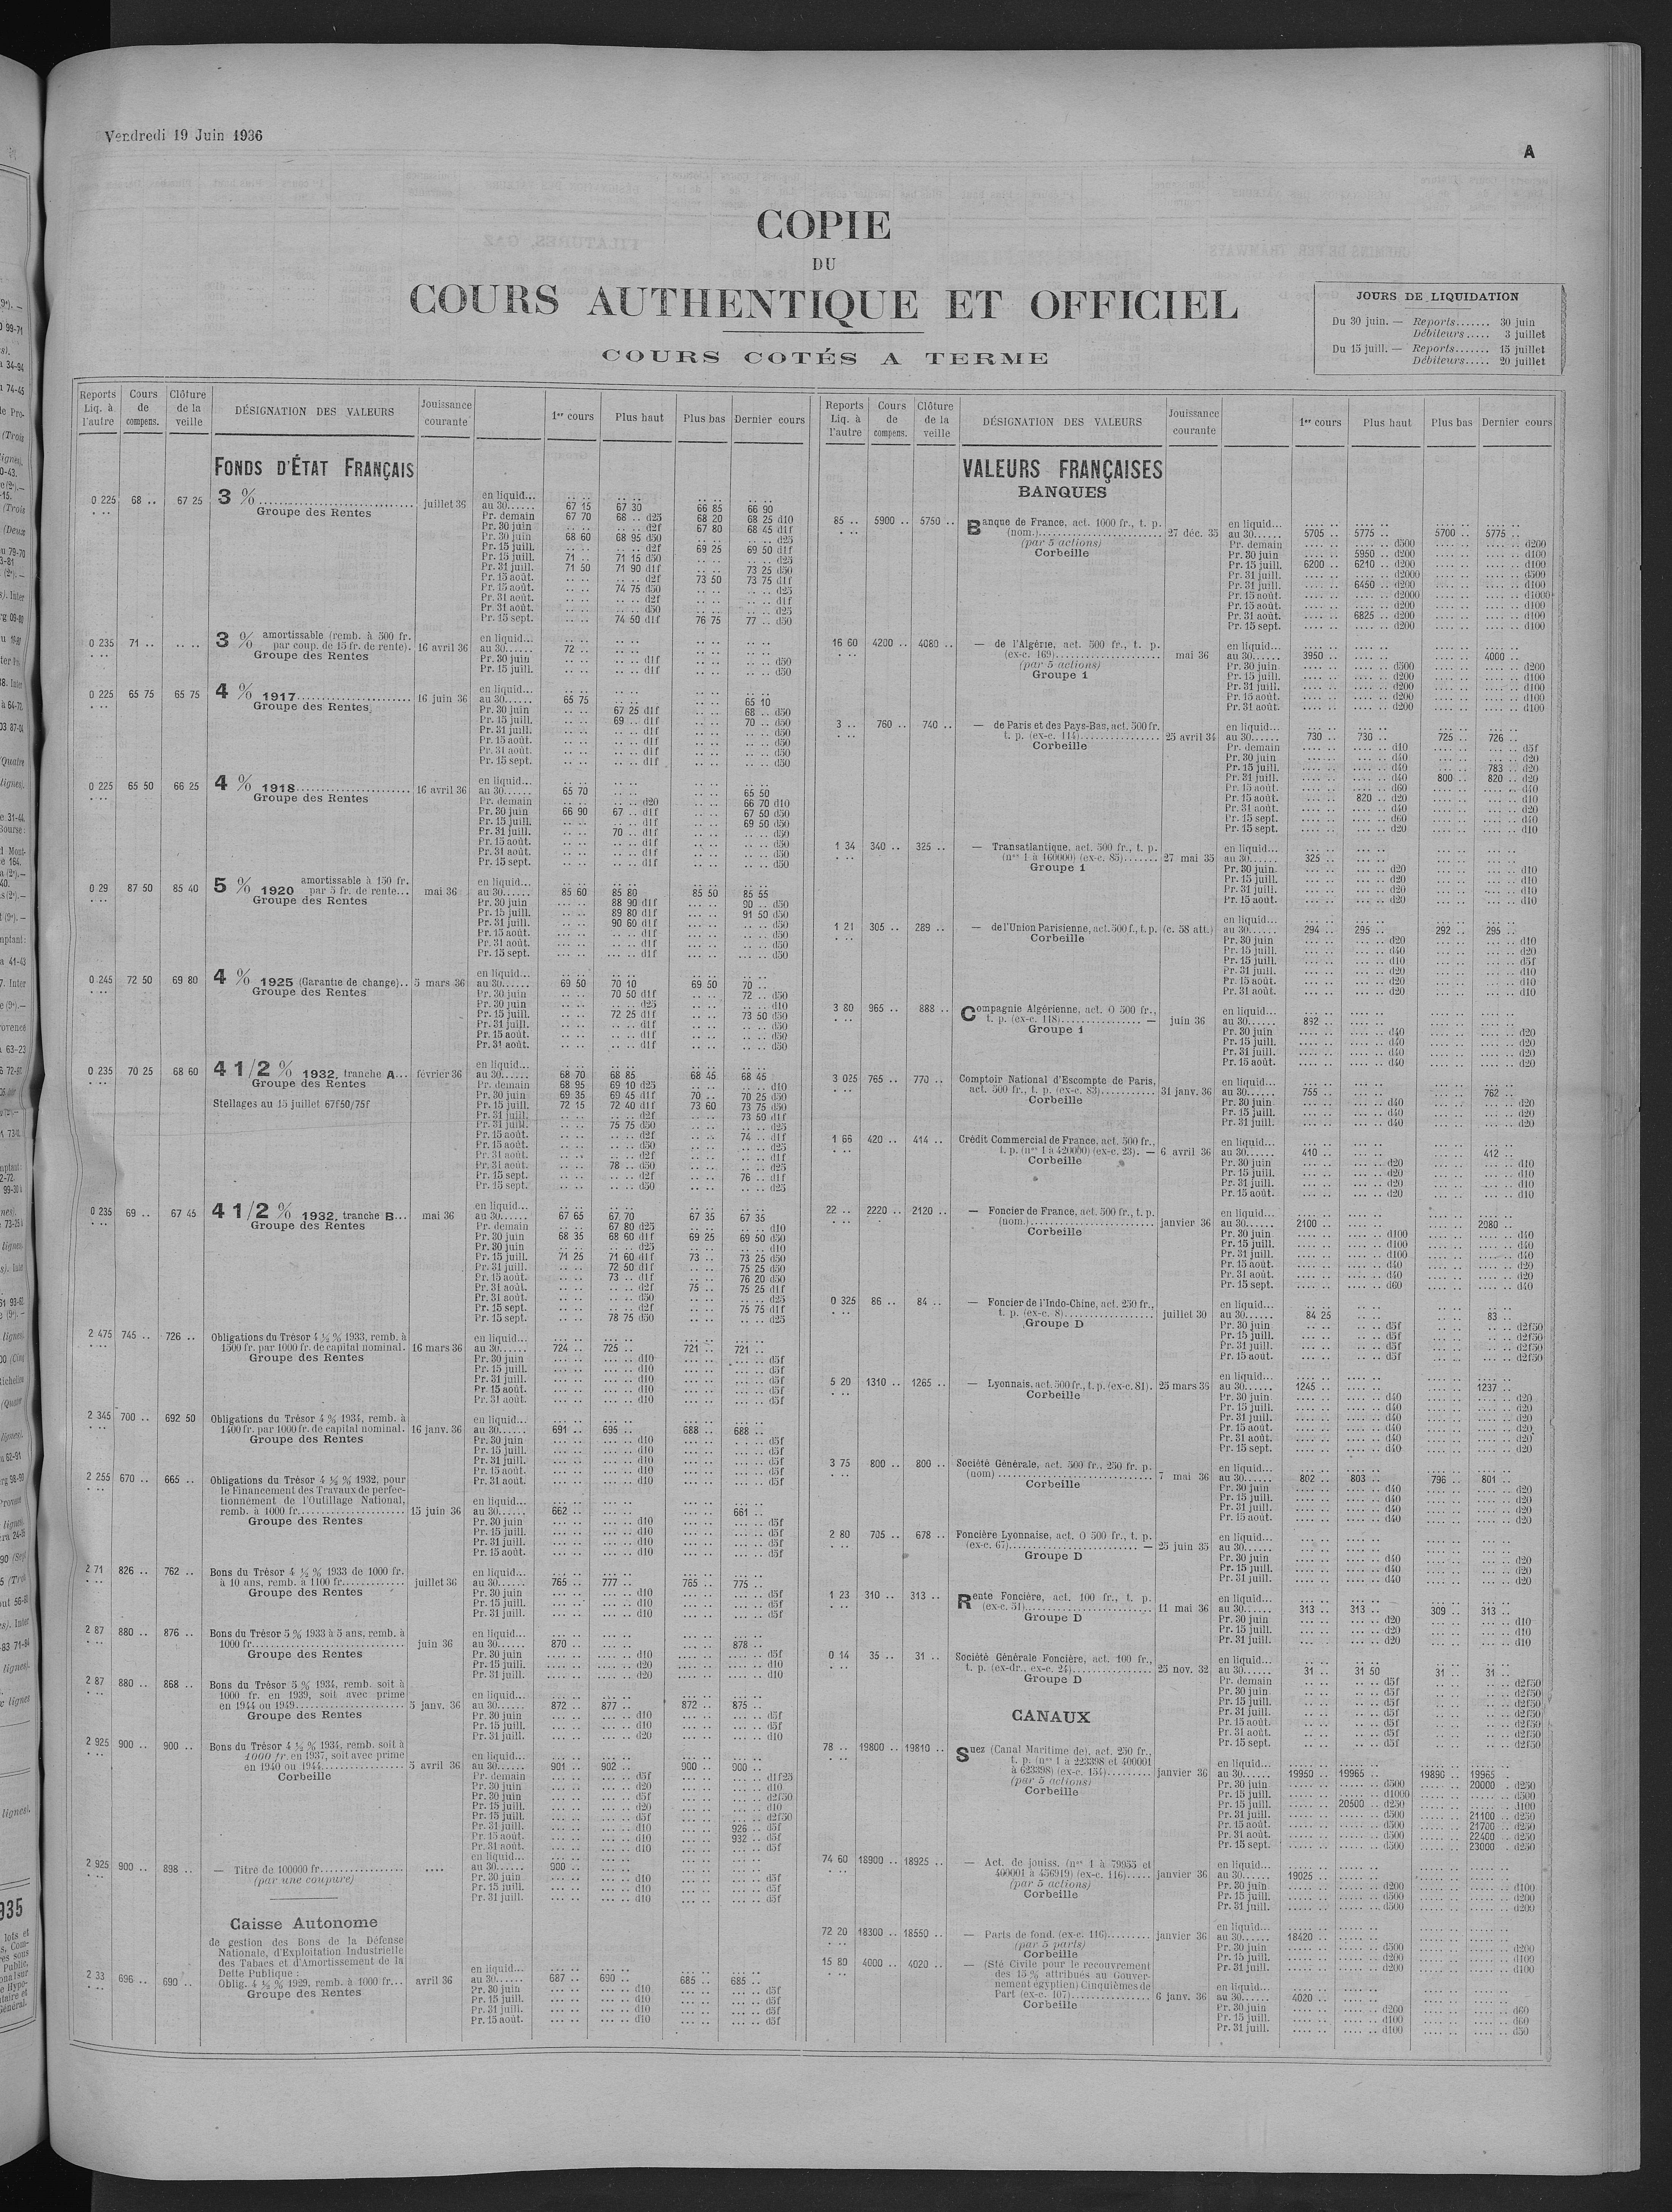 Vendredi 19 Juin 1936
A
COPIE
DU
COURS AUTHENTIQUE ET OFFICIEL
COURS COTÉS A TERME
JOURS DE LIQUIDATION
Du 30 juin. — Reports....... 30 juin
Débiteurs..... 3 juillet
Du 15 juill. — Reports....... 15 juillet
Débiteurs..... 20 juillet
Reports Liq. à l'autre | Cours de compens. | Clôture de la veille | DÉSIGNATION DES VALEURS | Jouissance courante | 1er cours | Plus haut | Plus bas | Dernier cours
FONDS D'ÉTAT FRANÇAIS
0 225 68 .. 67 25 3 % juillet 36
Groupe des Rentes
en liquid... .. .. .. .. .. .. .. ..
au 30...... 67 15 67 30 66 85 66 90
Pr. demain 67 70 68 .. d25 68 20 68 25 d10
Pr. 30 juin .. .. .. .. d2f 67 80 68 45 d1f
Pr. 30 juin 68 60 68 95 d50 .. .. .. .. d25
Pr. 15 juill. .. .. .. .. d2f 69 25 69 50 d1f
Pr. 15 juill. 71 .. 71 15 d50 .. .. .. .. d25
Pr. 31 juill. 71 50 71 90 d1f .. .. 73 25 d50
Pr. 15 août. .. .. .. .. d2f 73 50 73 75 d1f
Pr. 15 août. .. .. 74 75 d50 .. .. .. .. d25
Pr. 31 août. .. .. .. .. d2f .. .. .. .. d1f
Pr. 31 août. .. .. .. .. d50 .. .. .. .. d25
Pr. 15 sept. .. .. 74 50 d1f 76 75 77 .. d50
0 235 71 .. .. .. 3 % amortissable (remb. à 500 fr.
par coup. de 15 fr. de rente). 16 avril 36
Groupe des Rentes
en liquid...
au 30...... 72 ..
Pr. 30 juin .. .. d1f .. .. d50
Pr. 15 juill. .. .. d1f .. .. d50
0 225 65 75 65 75 4 % 1917 16 juin 36
Groupe des Rentes
en liquid...
au 30...... 65 75 65 10
Pr. 30 juin 67 25 d1f 68 .. d50
Pr. 15 juill. 69 .. d1f 70 .. d50
Pr. 31 juill. .. .. d1f .. .. d50
Pr. 15 août. .. .. d1f .. .. d50
Pr. 31 août. .. .. d1f .. .. d50
Pr. 15 sept. .. .. d1f .. .. d50
0 225 65 50 66 25 4 % 1918 16 avril 36
Groupe des Rentes
en liquid...
au 30...... 65 70 65 50
Pr. demain .. .. d20 66 70 d10
Pr. 30 juin 66 90 67 .. d1f 67 50 d50
Pr. 15 juill. .. .. d1f 69 50 d50
Pr. 31 juill. 70 .. d1f .. .. d50
Pr. 15 août. .. .. d1f .. .. d50
Pr. 31 août. .. .. d1f .. .. d50
Pr. 15 sept. .. .. d1f .. .. d50
0 29 87 50 85 40 5 % 1920 amortissable à 150 fr.
par 5 fr. de rente... mai 36
Groupe des Rentes
en liquid...
au 30...... 85 60 85 80 85 50 85 55
Pr. 30 juin 88 90 d1f 90 .. d50
Pr. 15 juill. 89 80 d1f 91 50 d50
Pr. 31 juill. 90 60 d1f .. .. d50
Pr. 15 août. .. .. d1f .. .. d50
Pr. 31 août. .. .. d1f .. .. d50
Pr. 15 sept. .. .. d1f .. .. d50
0 245 72 50 69 80 4 % 1925 (Garantie de change).. 5 mars 36
Groupe des Rentes
en liquid...
au 30...... 69 50 70 10 69 50 70 ..
Pr. 30 juin 70 50 d1f 72 .. d50
Pr. 30 juin .. .. d25 .. .. d10
Pr. 15 juill. 72 25 d1f 73 50 d50
Pr. 31 juill. .. .. d1f .. .. d50
Pr. 15 août. .. .. d1f .. .. d50
Pr. 31 août. .. .. d1f .. .. d50
0 235 70 25 68 60 4 1/2 % 1932, tranche A... février 36
Groupe des Rentes
Stellages au 15 juillet 67f50/75f
en liquid...
au 30...... 68 70 68 85 68 45 68 45
Pr. demain 68 95 69 10 d25 .. .. .. .. d10
Pr. 30 juin 69 35 69 45 d1f 70 .. 70 25 d50
Pr. 15 juill. 72 15 72 40 d1f 73 60 73 75 d50
Pr. 31 juill. .. .. d2f 73 50 d1f
Pr. 31 juill. 75 75 d50 .. .. d25
Pr. 15 août. .. .. d2f 74 .. d1f
Pr. 15 août. .. .. d50 .. .. d25
Pr. 31 août. .. .. d2f .. .. d1f
Pr. 31 août. 78 .. d50 .. .. d25
Pr. 15 sept. .. .. d2f 76 .. d1f
Pr. 15 sept. .. .. d50 .. .. d25
0 235 69 .. 67 45 4 1/2 % 1932, tranche B... mai 36
Groupe des Rentes
en liquid...
au 30...... 67 65 67 70 67 35 67 35
Pr. demain 67 80 d25 .. .. d10
Pr. 30 juin 68 35 68 60 d1f 69 25 69 50 d50
Pr. 30 juin .. .. d25 .. .. d10
Pr. 15 juill. 71 25 71 60 d1f 73 .. 73 25 d50
Pr. 31 juill. 72 50 d1f 75 25 d50
Pr. 15 août. 73 .. d1f 76 20 d50
Pr. 31 août. .. .. d2f 75 .. 75 25 d1f
Pr. 31 août. .. .. d50 .. .. d25
Pr. 15 sept. .. .. d2f 75 75 d1f
Pr. 15 sept. 78 75 d50 .. .. d25
2 475 745 .. 726 .. Obligations du Trésor 4 ½ % 1933, remb. à
1500 fr. par 1000 fr. de capital nominal. 16 mars 36
Groupe des Rentes
en liquid...
au 30...... 724 .. 725 .. 721 .. 721 ..
Pr. 30 juin d10 d5f
Pr. 15 juill. d10 d5f
Pr. 31 juill. d10 d5f
Pr. 15 août. d10 d5f
Pr. 31 août. d10 d5f
2 345 700 .. 692 50 Obligations du Trésor 4 % 1934, remb. à
1400 fr. par 1000 fr. de capital nominal. 16 janv. 36
Groupe des Rentes
en liquid...
au 30...... 691 .. 695 .. 688 .. 688 ..
Pr. 30 juin d10 d5f
Pr. 15 juill. d10 d5f
Pr. 31 juill. d10 d5f
Pr. 15 août. d10 d5f
Pr. 31 août. d10 d5f
2 255 670 .. 665 .. Obligations du Trésor 4 ½ % 1932, pour
le Financement des Travaux de perfec-
tionnement de l'Outillage National,
remb. à 1000 fr. 15 juin 36
Groupe des Rentes
en liquid...
au 30...... 662 .. 661 ..
Pr. 30 juin d10 d5f
Pr. 15 juill. d10 d5f
Pr. 31 juill. d10 d5f
Pr. 15 août. d10 d5f
2 71 826 .. 762 .. Bons du Trésor 4 ½ % 1933 de 1000 fr.
à 10 ans, remb. à 1100 fr. juillet 36
Groupe des Rentes
en liquid...
au 30...... 765 .. 777 .. 765 .. 775 ..
Pr. 30 juin d10 d5f
Pr. 15 juill. d10 d5f
Pr. 31 juill. d10 d5f
2 87 880 .. 876 .. Bons du Trésor 5 % 1933 à 5 ans, remb. à
1000 fr. juin 36
Groupe des Rentes
en liquid...
au 30...... 870 .. 878 ..
Pr. 30 juin d10 d5f
Pr. 15 juill. d20 d10
Pr. 31 juill. d20 d10
2 87 880 .. 868 .. Bons du Trésor 5 % 1934, remb. soit à
1000 fr. en 1939, soit avec prime
en 1944 ou 1949 5 janv. 36
Groupe des Rentes
en liquid...
au 30...... 872 .. 877 .. 872 .. 875 ..
Pr. 30 juin d10 d5f
Pr. 15 juill. d10 d5f
Pr. 31 juill. d20 d10
2 925 900 .. 900 .. Bons du Trésor 4 ½ % 1934, remb. soit à
1000 fr. en 1937, soit avec prime
en 1940 ou 1944 5 avril 36
Corbeille
en liquid...
au 30...... 901 .. 902 .. 900 .. 900 ..
Pr. demain d5f d1f25
Pr. 30 juin d20 d10
Pr. 30 juin d5f d2f50
Pr. 15 juill. d20 d10
Pr. 15 juill. d5f d2f50
Pr. 31 juill. d10 926 .. d5f
Pr. 15 août. d10 932 .. d5f
Pr. 31 août. d10 d5f
2 925 900 .. 898 .. — Titre de 100000 fr.
(par une coupure)
en liquid...
au 30...... 900 ..
Pr. 30 juin d10 d5f
Pr. 15 juill. d10 d5f
Pr. 31 juill. d10 d5f
Caisse Autonome
de gestion des Bons de la Défense
Nationale, d'Exploitation Industrielle
des Tabacs et d'Amortissement de la
Dette Publique :
2 33 696 .. 690 .. Oblig. 4 ½ % 1929, remb. à 1000 fr... avril 36
Groupe des Rentes
en liquid...
au 30...... 687 .. 690 .. 685 .. 685 ..
Pr. 30 juin d10 d5f
Pr. 15 juill. d10 d5f
Pr. 31 juill. d10 d5f
Pr. 15 août. d10 d5f
Reports Liq. à l'autre | Cours de compens. | Clôture de la veille | DÉSIGNATION DES VALEURS | Jouissance courante | 1er cours | Plus haut | Plus bas | Dernier cours
VALEURS FRANÇAISES
BANQUES
85 .. 5900 .. 5750 .. Banque de France, act. 1000 fr., t. p.
(nom.) 27 déc. 35
(par 5 actions)
Corbeille
en liquid...
au 30...... 5705 .. 5775 .. 5700 .. 5775 ..
Pr. demain d500 d200
Pr. 30 juin 5950 .. d200 d100
Pr. 15 juill. 6200 .. 6210 .. d200 d100
Pr. 31 juill. d2000 d500
Pr. 31 juill. 6450 .. d200 d100
Pr. 15 août. d2000 d1000
Pr. 15 août. d200 d100
Pr. 31 août. 6825 .. d200 d100
Pr. 15 sept. d200 d100
16 60 4200 .. 4080 .. — de l'Algérie, act. 500 fr., t. p.
(ex-c. 169) mai 36
(par 5 actions)
Groupe 1
en liquid...
au 30...... 3950 .. 4000 ..
Pr. 30 juin d500 d200
Pr. 15 juill. d200 d100
Pr. 31 juill. d200 d100
Pr. 15 août. d200 d100
Pr. 31 août. d200 d100
3 .. 760 .. 740 .. — de Paris et des Pays-Bas, act. 500 fr.
t. p. (ex-c. 114) 25 avril 34
Corbeille
en liquid...
au 30...... 730 .. 730 .. 725 .. 726 ..
Pr. demain d10 d5f
Pr. 30 juin d40 d20
Pr. 15 juill. d40 783 .. d20
Pr. 31 juill. d40 800 .. 820 .. d20
Pr. 15 août. d60 d40
Pr. 15 août. 820 .. d20 d10
Pr. 31 août. d40 d20
Pr. 15 sept. d60 d40
Pr. 15 sept. d20 d10
1 34 340 .. 325 .. — Transatlantique, act. 500 fr., t. p.
(nos 1 à 160000) (ex-c. 85) 27 mai 35
Groupe 1
en liquid...
au 30...... 325 ..
Pr. 30 juin d20 d10
Pr. 15 juill. d20 d10
Pr. 31 juill. d20 d10
Pr. 15 août. d20 d10
1 21 305 .. 289 .. — de l'Union Parisienne, act. 500 f., t. p. (c. 58 att.)
Corbeille
en liquid...
au 30...... 294 .. 295 .. 292 .. 295 ..
Pr. 30 juin d20 d10
Pr. 15 juill. d40 d20
Pr. 15 juill. d10 d5f
Pr. 31 juill. d20 d10
Pr. 15 août. d20 d10
Pr. 31 août. d20 d10
3 80 965 .. 888 .. Compagnie Algérienne, act. O 500 fr.,
t. p. (ex-c. 118) — juin 36
Groupe 1
en liquid...
au 30...... 892 ..
Pr. 30 juin d40 d20
Pr. 15 juill. d40 d20
Pr. 31 juill. d40 d20
Pr. 15 août. d40 d20
3 025 765 .. 770 .. Comptoir National d'Escompte de Paris,
act. 500 fr., t. p. (ex-c. 83) 31 janv. 36
Corbeille
en liquid...
au 30...... 755 .. 762 ..
Pr. 30 juin d40 d20
Pr. 15 juill. d40 d20
Pr. 31 juill. d40 d20
1 66 420 .. 414 .. Crédit Commercial de France, act. 500 fr.,
t. p. (nos 1 à 420000) (ex-c. 23). — 6 avril 36
Corbeille
en liquid...
au 30...... 410 .. 412 ..
Pr. 30 juin d20 d10
Pr. 15 juill. d20 d10
Pr. 31 juill. d20 d10
Pr. 15 août. d20 d10
22 .. 2220 .. 2120 .. — Foncier de France, act. 500 fr., t. p.
(nom.) janvier 36
Corbeille
en liquid...
au 30...... 2100 .. 2080 ..
Pr. 30 juin d100 d40
Pr. 15 juill. d100 d40
Pr. 31 juill. d100 d40
Pr. 15 août. d40 d20
Pr. 31 août. d40 d20
Pr. 15 sept. d60 d40
0 325 86 .. 84 .. — Foncier de l'Indo-Chine, act. 250 fr.,
t. p. (ex-c. 8) juillet 30
Groupe D
en liquid...
au 30...... 84 25 83 ..
Pr. 30 juin d5f d2f50
Pr. 15 juill. d5f d2f50
Pr. 31 juill. d5f d2f50
Pr. 15 août. d5f d2f50
5 20 1310 .. 1265 .. — Lyonnais, act. 500 fr., t. p. (ex-c. 81). 25 mars 36
Corbeille
en liquid...
au 30...... 1245 .. 1237 ..
Pr. 30 juin d40 d20
Pr. 15 juill. d40 d20
Pr. 31 juill. d40 d20
Pr. 15 août. d40 d20
Pr. 31 août. d40 d20
Pr. 15 sept. d40 d20
3 75 800 .. 800 .. Société Générale, act. 500 fr., 250 fr. p.
(nom) 7 mai 36
Corbeille
en liquid...
au 30...... 802 .. 803 .. 796 .. 801 ..
Pr. 30 juin d40 d20
Pr. 15 juill. d40 d20
Pr. 31 juill. d40 d20
Pr. 15 août. d40 d20
2 80 705 .. 678 .. Foncière Lyonnaise, act. O 500 fr., t. p.
(ex-c. 67) — 25 juin 35
Groupe D
en liquid...
au 30......
Pr. 30 juin d40 d20
Pr. 15 juill. d40 d20
Pr. 31 juill. d40 d20
1 23 310 .. 313 .. Rente Foncière, act. 100 fr., t. p.
(ex-c. 51) 11 mai 36
Groupe D
en liquid...
au 30...... 313 .. 313 .. 309 .. 313 ..
Pr. 30 juin d20 d10
Pr. 15 juill. d20 d10
Pr. 31 juill. d20 d10
0 14 35 .. 31 .. Société Générale Foncière, act. 100 fr.,
t. p. (ex-dr., ex-c. 24) 25 nov. 32
Groupe D
en liquid...
au 30...... 31 .. 31 50 31 .. 31 ..
Pr. demain d5f d2f50
Pr. 30 juin d5f d2f50
Pr. 15 juill. d5f d2f50
Pr. 31 juill. d5f d2f50
Pr. 15 août. d5f d2f50
Pr. 31 août. d5f d2f50
Pr. 15 sept. d5f d2f50
CANAUX
78 .. 19800 .. 19810 .. Suez (Canal Maritime de), act. 250 fr.,
t. p. (nos 1 à 223398 et 400001
à 623398) (ex-c. 154) janvier 36
(par 5 actions)
Corbeille
en liquid...
au 30...... 19950 .. 19965 .. 19890 .. 19965 ..
Pr. 30 juin d500 20000 .. d250
Pr. 15 juill. d1000 d500
Pr. 15 juill. 20500 .. d250 d100
Pr. 31 juill. d500 21100 .. d250
Pr. 15 août. d500 21700 .. d250
Pr. 31 août. d500 22400 .. d250
Pr. 15 sept. d500 23000 .. d250
74 60 18900 .. 18925 .. — Act. de jouiss. (nos 1 à 79955 et
400001 à 456919) (ex-c. 116) janvier 36
(par 5 actions)
Corbeille
en liquid...
au 30...... 19025 ..
Pr. 30 juin d200 d100
Pr. 15 juill. d500 d200
Pr. 31 juill. d500 d200
72 20 18300 .. 18550 .. — Parts de fond. (ex-c. 116) janvier 36
(par 5 parts)
Corbeille
en liquid...
au 30...... 18420 ..
Pr. 30 juin d500 d200
Pr. 15 juill. d200 d100
Pr. 31 juill. d200 d100
15 80 4000 .. 4020 .. — (Sté Civile pour le recouvrement
des 15 % attribués au Gouver-
nement égyptien) Cinquièmes de
Part (ex-c. 107) 6 janv. 36
Corbeille
en liquid...
au 30...... 4020 ..
Pr. 30 juin d200 d60
Pr. 15 juill. d100 d60
Pr. 31 juill. d100 d50